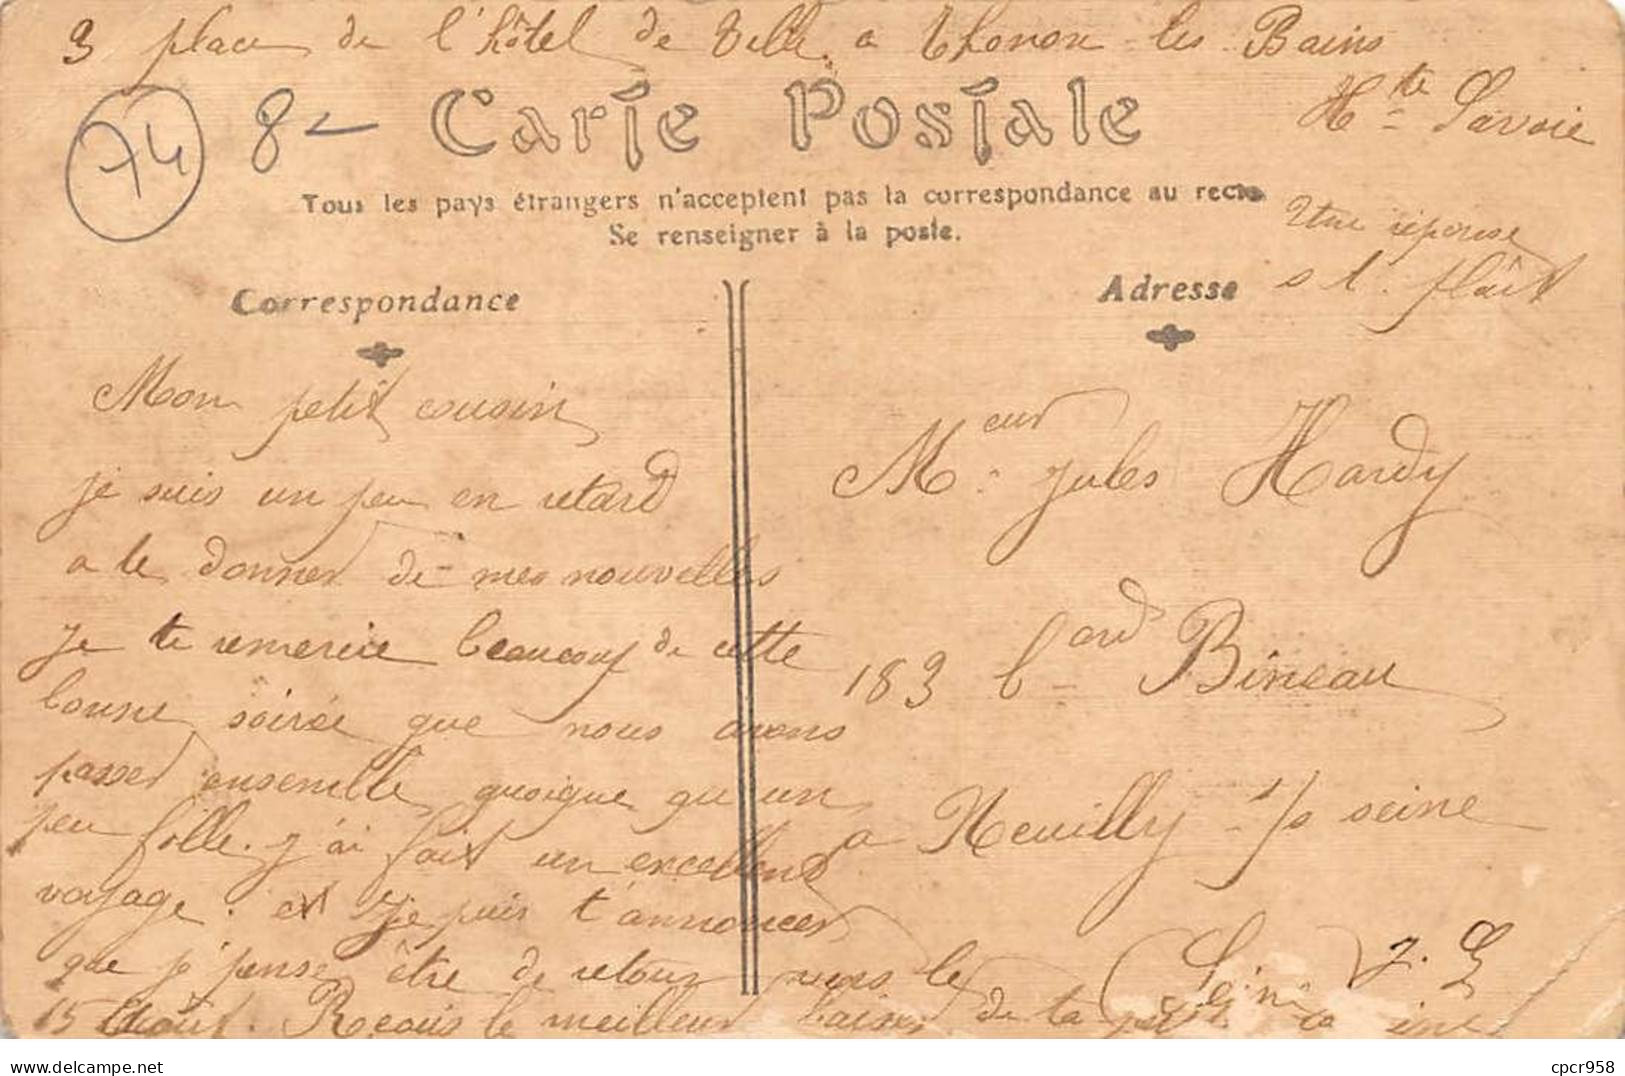 3 place de l'hôtel de Ville. a Thonon-les-Bains
Hte Savoie
74 8-
Carte Postale
Tous les pays étrangers n'acceptent pas la correspondance au recto
Se renseigner à la poste.
Une réponse
s l. plâit
Correspondance
Adresse
Mon petit cousin
je suis un peu en retard
a te donner de mes nouvelles
Je te remercie beaucoup de cette
bonne soirée que nous avons
passer ensemble quoique qu'un
peu folle. j'ai fait un excellend
voyage. et Je puis t'annoncer
que j'pense être de retour vers le
15 Août. Reçois le meilleur baiser de ta petite cousine
Meur Jules Hardy
183 bard Bineau
a Neuilly s/s seine
(Seine)
J. L
www.delcampe.net
cpcr958